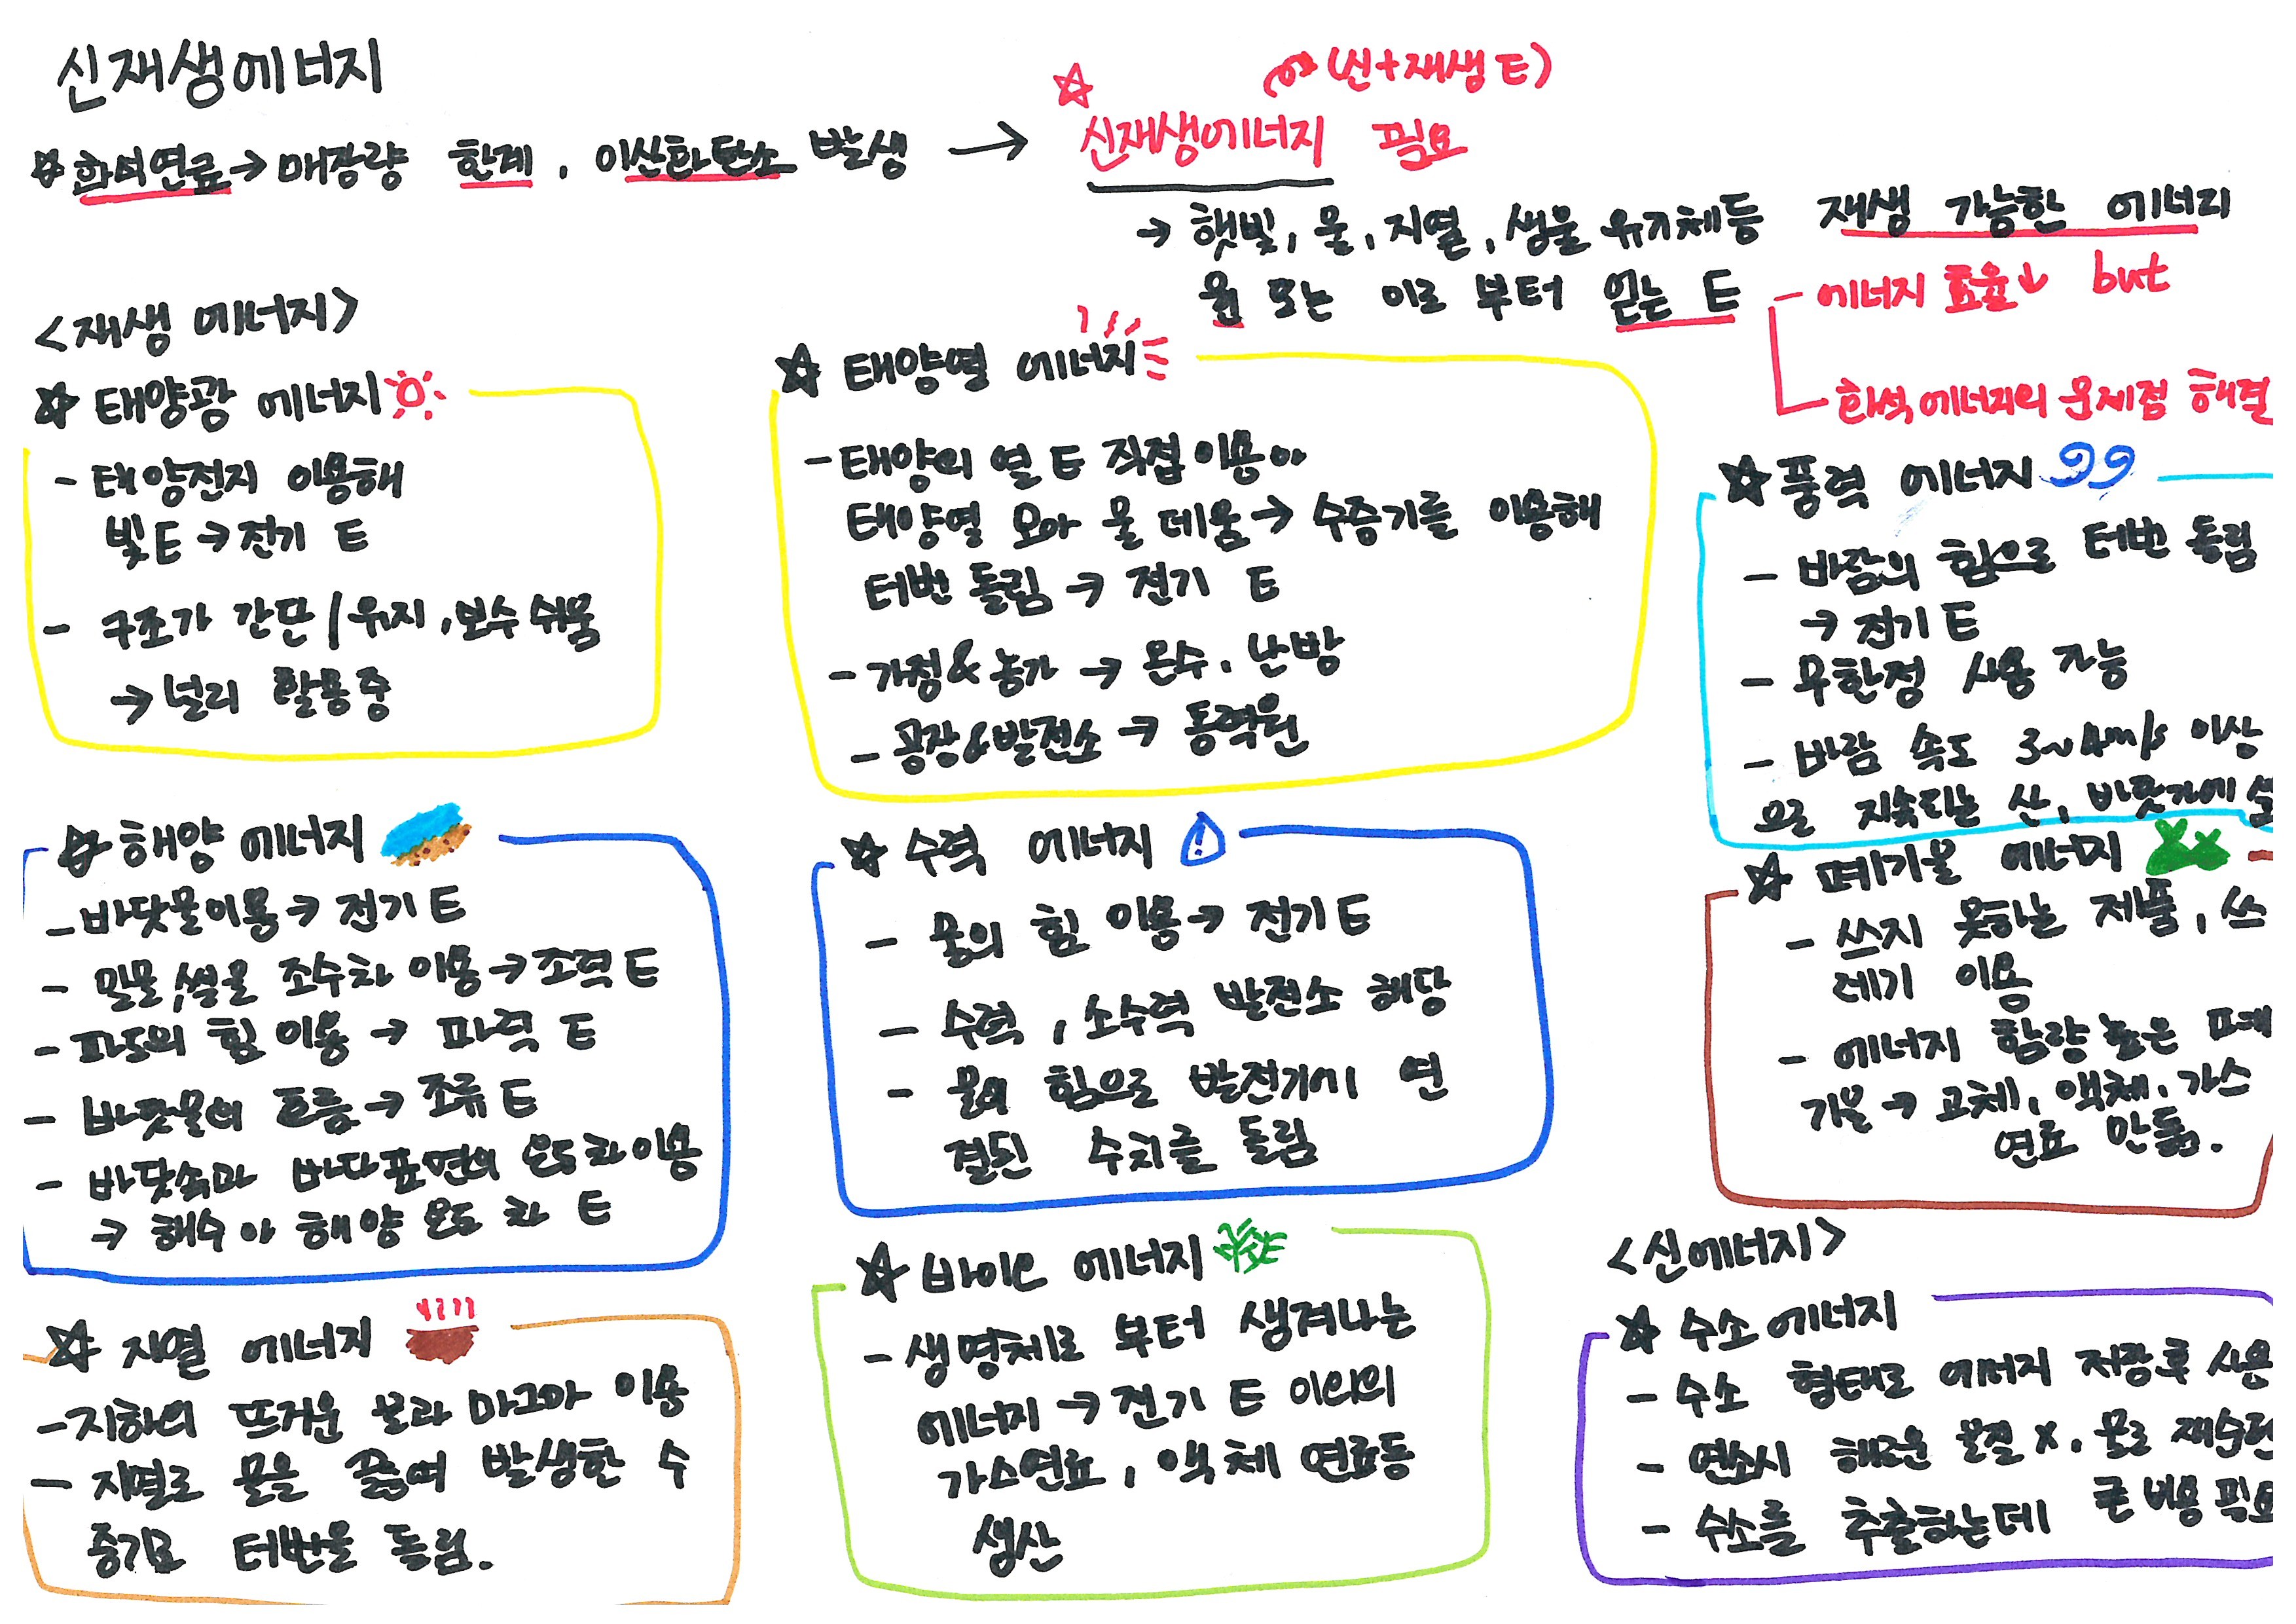 신재생에너지
☆ 화석연료→매장량 한계, 이산화탄소 발생 → 신재생에너지 필요
(신+재생E)
→ 햇빛, 물, 지열, 생물 유기체등 재생 가능한 에너지
원 또는 이로 부터 얻는 E
- 에너지 효율↓ but
화석에너지의 문제점 해결
<재생 에너지>
☆ 태양광 에너지
- 태양전지 이용해
빛E → 전기 E
- 구조가 간단/유지,보수 쉬움
→ 널리 활용중
☆ 태양열 에너지
- 태양의 열 E 직접이용 or
태양열 모아 물 데움 → 수증기를 이용해
터번 돌림 → 전기 E
- 가정&농가 → 온수, 난방
- 공장&발전소 → 동력원
☆ 풍력 에너지
- 바람의 힘으로 터번 돌림
→ 전기 E
- 무한정 사용 가능
- 바람 속도 3~4m/s 이상
으로 지속되는 산, 바닷가에
☆ 해양 에너지
- 바닷물이용→ 전기 E
- 밀물,썰물 조수차 이용→조력 E
- 파도의 힘 이용 → 파력 E
- 바닷물의 흐름→ 조류 E
- 바닷속과 바다표면의 온도차이용
→ 해수 or 해양 온도 차 E
☆ 수력 에너지
- 물의 힘 이용→ 전기 E
- 수력, 소수력 발전소 해당
- 물의 힘으로 발전기에 연
결된 수차를 돌림
☆ 폐기물 에너지
- 쓰지 못하는 제품, 쓰
레기 이용
- 에너지 함량 높은 폐
기물→ 고체, 액체, 가스
연료 만듦.
☆ 지열 에너지
- 지하의 뜨거운 물과 마그마 이용
- 지열로 물을 끓여 발생한 수
증기로 터번을 돌림.
☆ 바이오 에너지
- 생명체로 부터 생겨나는
에너지 → 전기 E 이외의
가스연료, 액체 연료등
생산
<신에너지>
☆ 수소에너지
- 수소 형태로 에너지 저장후 사용
- 연소시 해로운 물질 x, 물로 재순환
- 수소를 추출하는데 큰 비용 필요